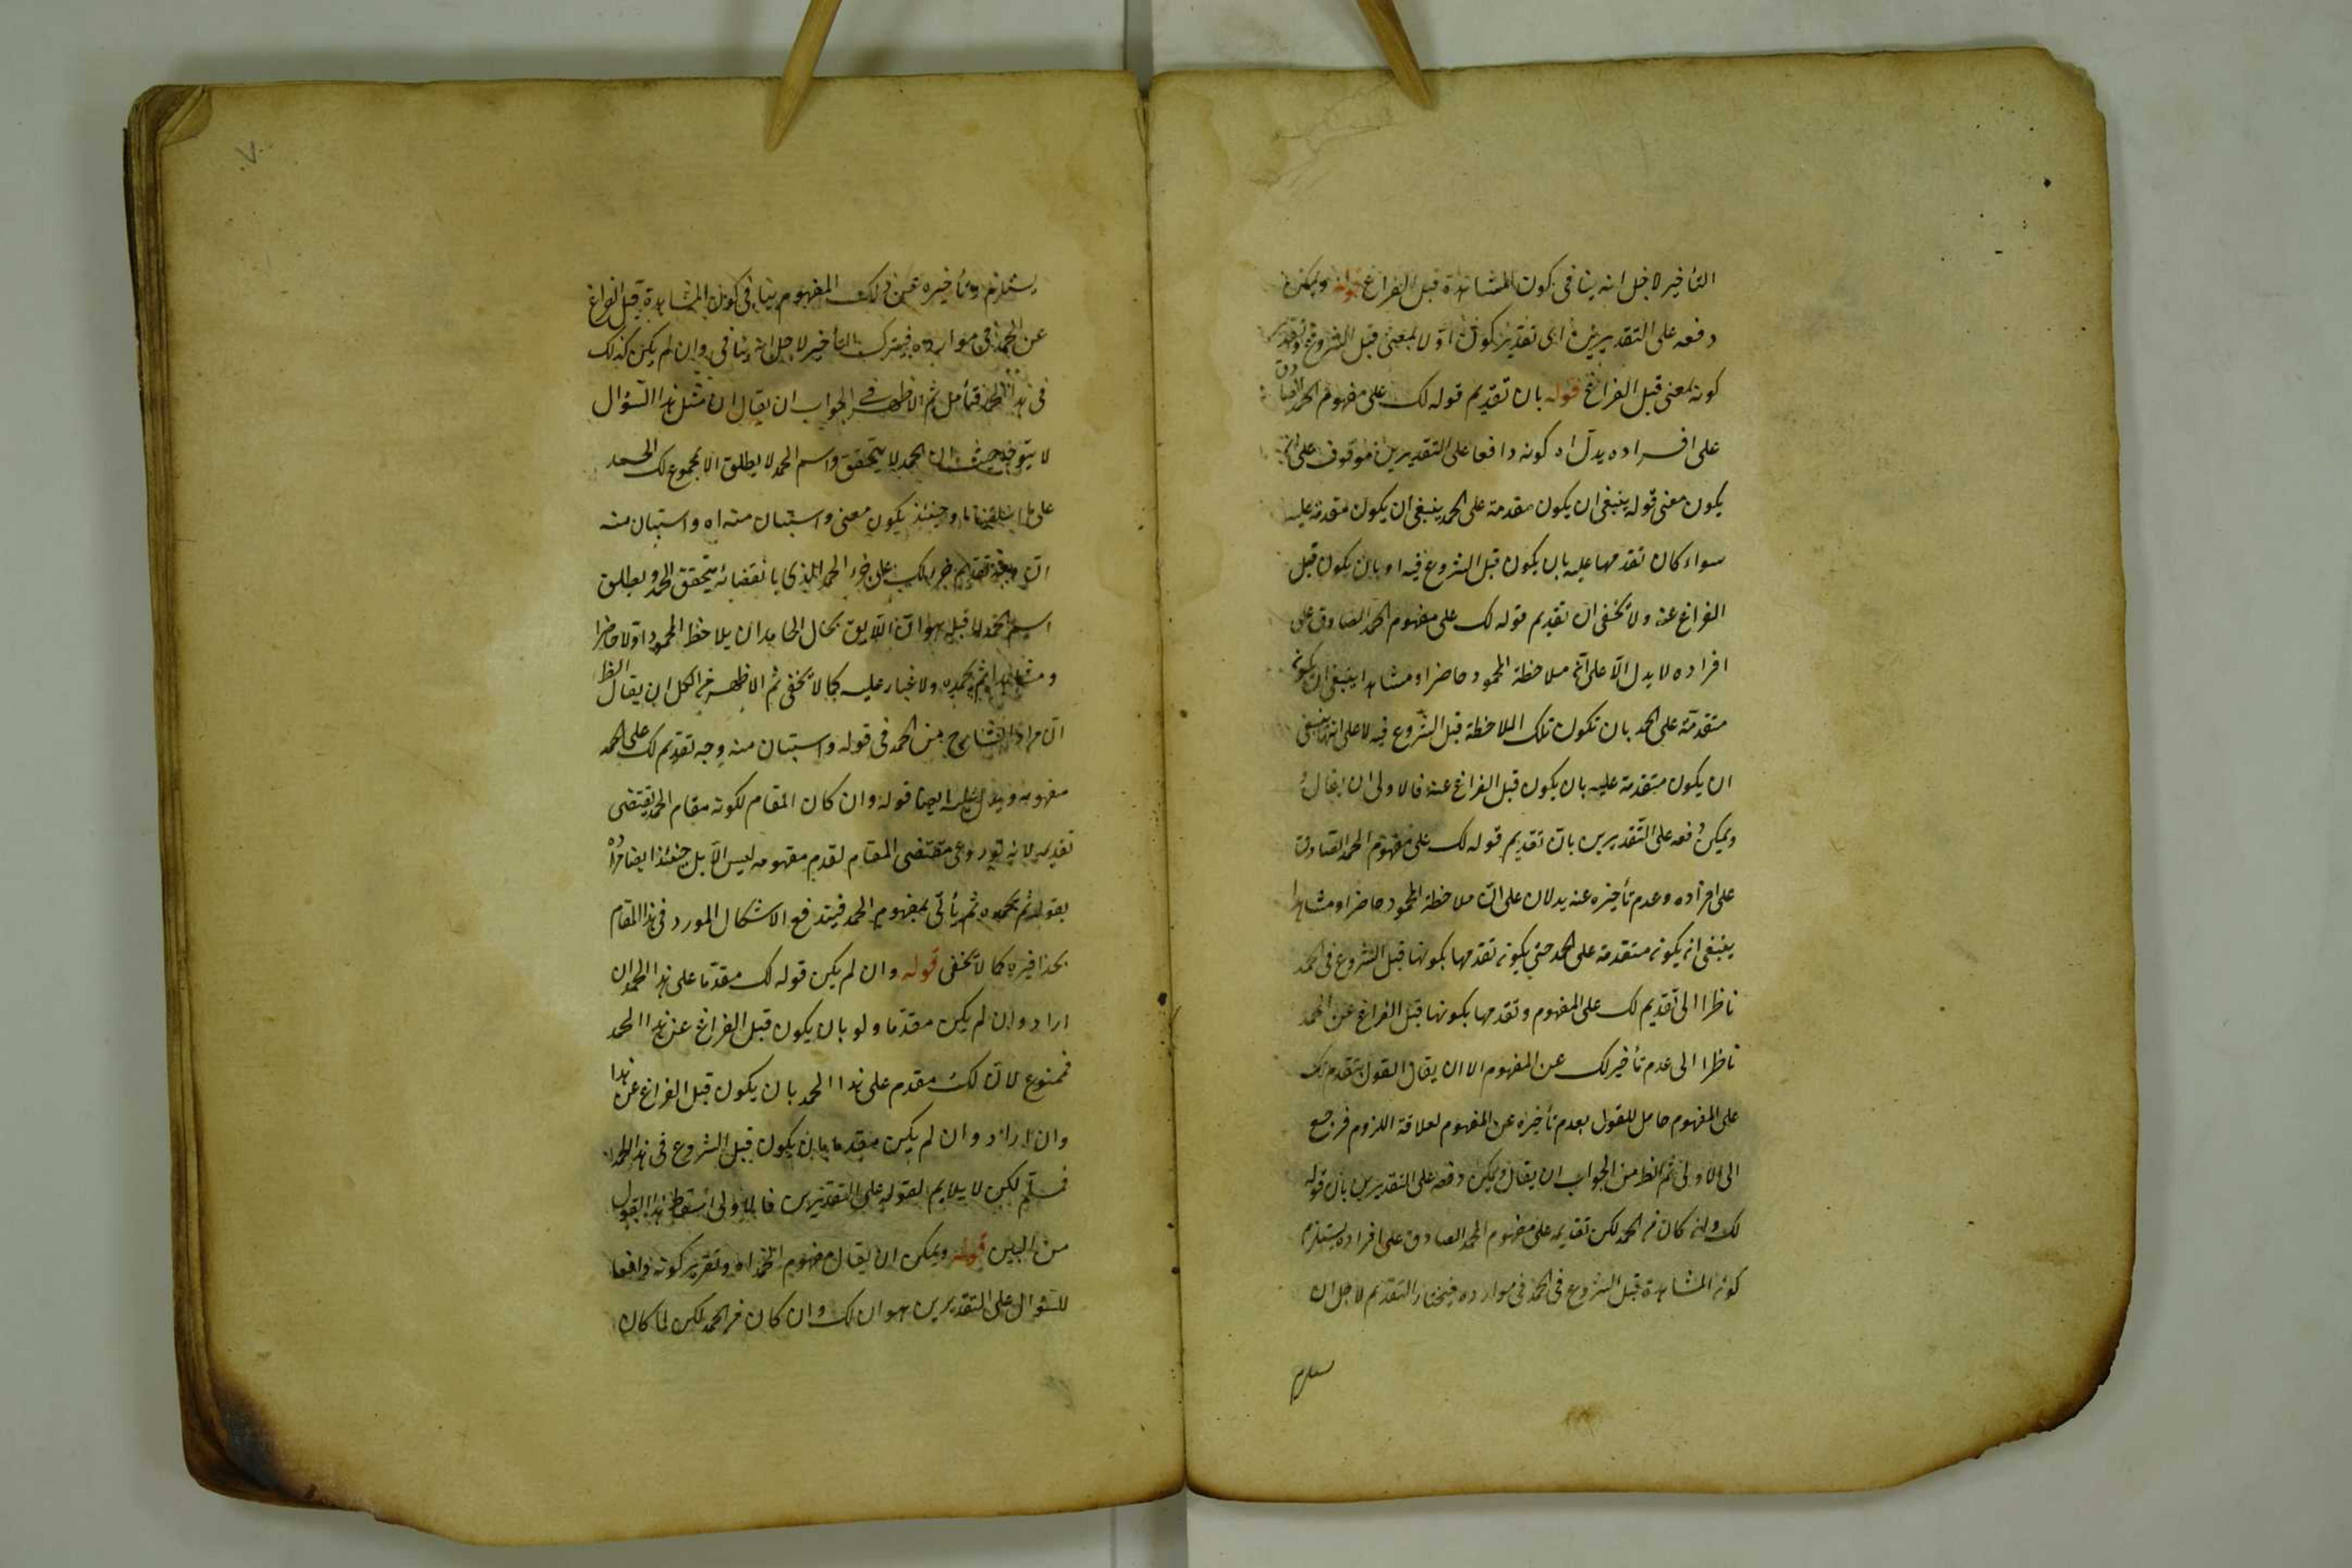 التأخير لاجل انه ينافى كون المشاهدة قبل الفراغ قوله ويمكن
دفعه على التقديرين اى تقدير كون اولا بمعنى قبل الشروع وتقدير
كونه بمعنى قبل الفراغ قوله بان تقديم قوله لك على مفهوم الحمد الصادق
على افراده يدل اه كونه دافعا على التقديرين موقوف على ان
يكون معنى قوله ينبغى ان يكون مقدمة على الحمد ينبغى ان يكون متقدمة عليه
سواء كان تقدمها عليه بان يكون قبل الشروع فيه او بان يكون قبل
الفراغ عنه ولا يخفى ان تقديم قوله لك على مفهوم الحمد الصادق على
افراده لا يدل الا على ان ملاحظة المحمود حاضرا ومشاهدا ينبغى ان يكون
متقدمة على الحمد بان تكون تلك الملاحظة قبل الشروع فيه لا على انها ينبغى
ان يكون متقدمة عليه بان يكون قبل الفراغ عنه فالاولى ان يقال
ويمكن دفعه على التقديرين بان تقديم قوله لك على مفهوم الحمد الصادق
على افراده وعدم تأخيره عنه يدلان على ان ملاحظة المحمود حاضرا ومشاهدا
ينبغى ان يكون متقدمة على الحمد حتى يكون تقدمها بكونها قبل الشروع فى الحمد
ناظرا الى تقديم لك على المفهوم وتقدمها بكونها قبل الفراغ عن الحمد
ناظرا الى عدم تأخير لك عن المفهوم الا ان يقال القول بتقدم لك
على المفهوم حامل للقول بعدم تأخيره عن المفهوم لعلاقة اللزوم فرجع
الى الاولى ثم الظ من الجواب ان يقال ويمكن دفعه على التقديرين بان قوله
لك وان كان فى الحمد لكن تقديمه على مفهوم الحمد الصادق على افراده يستلزم
كون المشاهدة قبل الشروع فى الحمد فى موارده فيختار التقديم لاجل ان
يستلزم وتأخيره عن ذلك المفهوم ينافى كون المشاهدة قبل الفراغ
عن الحمد فى موارده فيترك التأخير لاجل انه ينافى وان لم يكن كذلك
فى هذا الحمد فتأمل ثم الاظهر فى الجواب ان يقال ان مثل هذا السؤال
لا يتوجه حيث ان الحمد لا يتحقق واسم الحمد لا يطلق الا بمجموع لك الحمد
على ما وحينئذ يكون معنى واستبان منه اه واستبان منه
ان وجه تقديم لك على جزء الحمد الذى بانقضائه يتحقق الحمد ويطلق
اسم الحمد لا قبله هو ان اللايق بحال الحامد ان يلاحظ المحمود اولا حاضرا
ومشاهدا ثم يحمده ولا غبار عليه كما لا يخفى ثم الاظهر من الكل ان يقال الظ
ان مراد الشارح من الحمد فى قوله واستبان منه وجه تقديم لك على الحمد
مفهومه ويدل عليه ايضا قوله وان كان المقام لكونه مقام الحمد يقتضى
تقديمه لانه لو روعى مقتضى المقام لقدم مفهومه ليس الا بل حينئذ ايضا مراده
بقوله ثم يحمده ثم يأتى بمفهوم الحمد فيندفع الاشكال المورد فى هذا المقام
بحذافيره كما لا يخفى قوله وان لم يكن قوله لك مقدما على هذا الحمد ان
اراد وان لم يكن مقدما ولو بان يكون قبل الفراغ عن هذا الحمد
فممنوع لان لك مقدم على هذا الحمد بان يكون قبل الفراغ عن هذا
وان اراد وان لم يكن مقدما بان يكون قبل الشروع فى هذا الحمد
فمسلم لكن لا يلايم لقوله على التقديرين فالاولى اسقاط هذا القول
من البين قوله ويمكن ان يقال مفهوم الحمد اه وتقرير كونه دافعا
للسؤال على التقديرين هو ان لك وان كان فى الحمد لكن لما كان